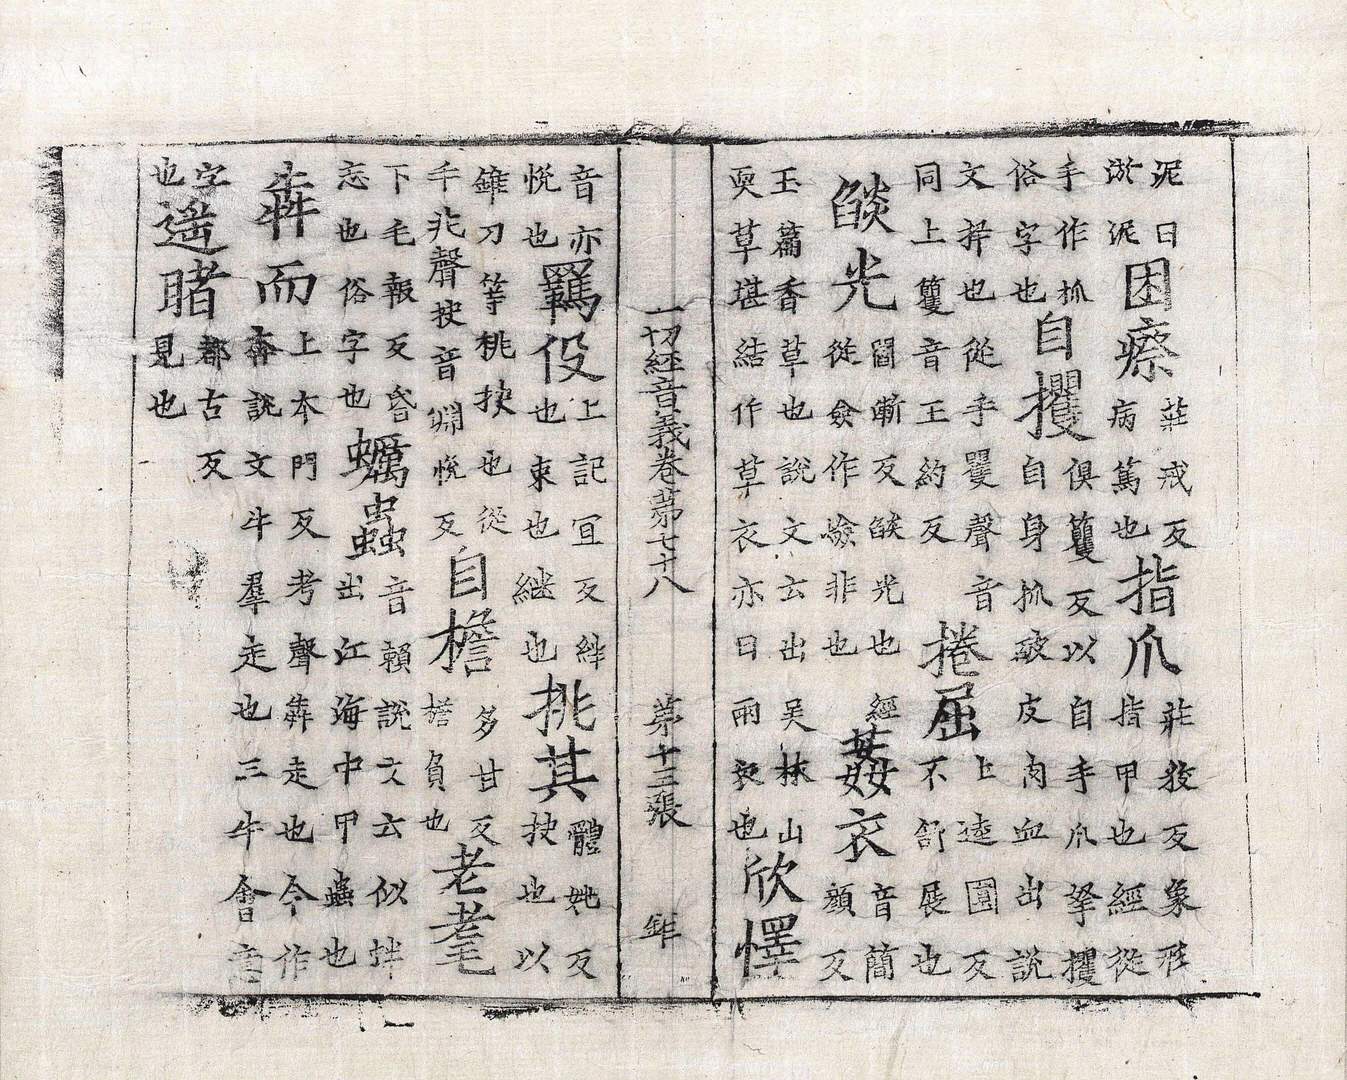 泥曰淤泥困瘵莊戒反病篤也指爪莊狡反象形指甲也經從
手作抓俗字也自攫俱籰反以自手爪拏攫自身抓破皮肉血出說
文爭也從手矍聲音同上籰音王約反捲屈上逵圓反不舒展也
燄光閻漸反燄光也經從僉作嶮非也葌衣音簡顏反
玉篇香草也說文云出吳林山耎草堪結作草衣亦曰雨衣也欣懌
一切經音義卷第七十八 第十三張
音亦悅也羈役上記冝反絆也束也継也挑其體姚反抉也以
錐刀等桃抉也從手兆聲抉音淵悅反自檐多甘反檐負也老耄
下毛報反昏忘也俗字也蠣蟲音賴說文云似蚌出江海中甲蟲也
犇而上本門反考聲犇走也今作奔說文牛羣走也三牛會意
字也遥睹都古反見也